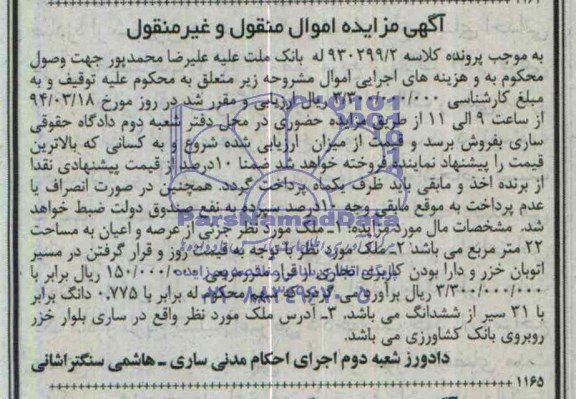 ۱۱۶۱
آگهی مزایده اموال منقول و غیرمنقول
به موجب پرونده کلاسه ۹۳۰۲۹۹/۲ له بانک ملت علیه علیرضا محمدپور جهت وصول
محکوم به و هزینه های اجرایی اموال مشروحه زیر متعلق به محکوم علیه توقیف و به
مبلغ کارشناسی ریال ارزیابی و مقرر شد در روز مورخ ۹۴/۰۳/۱۸
از ساعت ۹ الی ۱۱ از طریق مزایده حضوری در محل دفتر شعبه دوم دادگاه حقوقی
ساری بفروش برسد و قیمت از میزان ارزیابی شده شروع و به کسانی که بالاترین
قیمت را پیشنهاد نماینده فروخته خواهد شد ضمنا ۱۰درصد از قیمت پیشنهادی نقدا
از برنده اخذ و مابقی باید ظرف یکماه پرداخت گردد. همچنین در صورت انصراف یا
عدم پرداخت به موقع مابقی وجه ۱۰درصد سپرده به نفع صندوق دولت ضبط خواهد
شد. مشخصات مال مورد مزایده: ۱ـ ملک مورد نظر جزئی از عرصه و اعیان به مساحت
۲۲ متر مربع می باشد ۲ـ ملک مورد نظر با توجه به قیمت روز و قرار گرفتن در مسیر
اتوبان خزر و دارا بودن کاربری تجاری از قرار هر مترمربعی ۱۵۰/۰۰۰/۰۰۰ ریال برابر با
۳/۳۰۰/۰۰۰/۰۰۰ ریال برآورد می گردد که سهم محکوم له برابر با ۰.۷۷۵ دانگ برابر
با ۳۱ سیر از ششدانگ می باشد. ۳ـ آدرس ملک مورد نظر واقع در ساری بلوار خزر
روبروی بانک کشاورزی می باشد.
دادورز شعبه دوم اجرای احکام مدنی ساری ـ هاشمی سنگتراشانی
۱۱۶۵
ParsNamadData